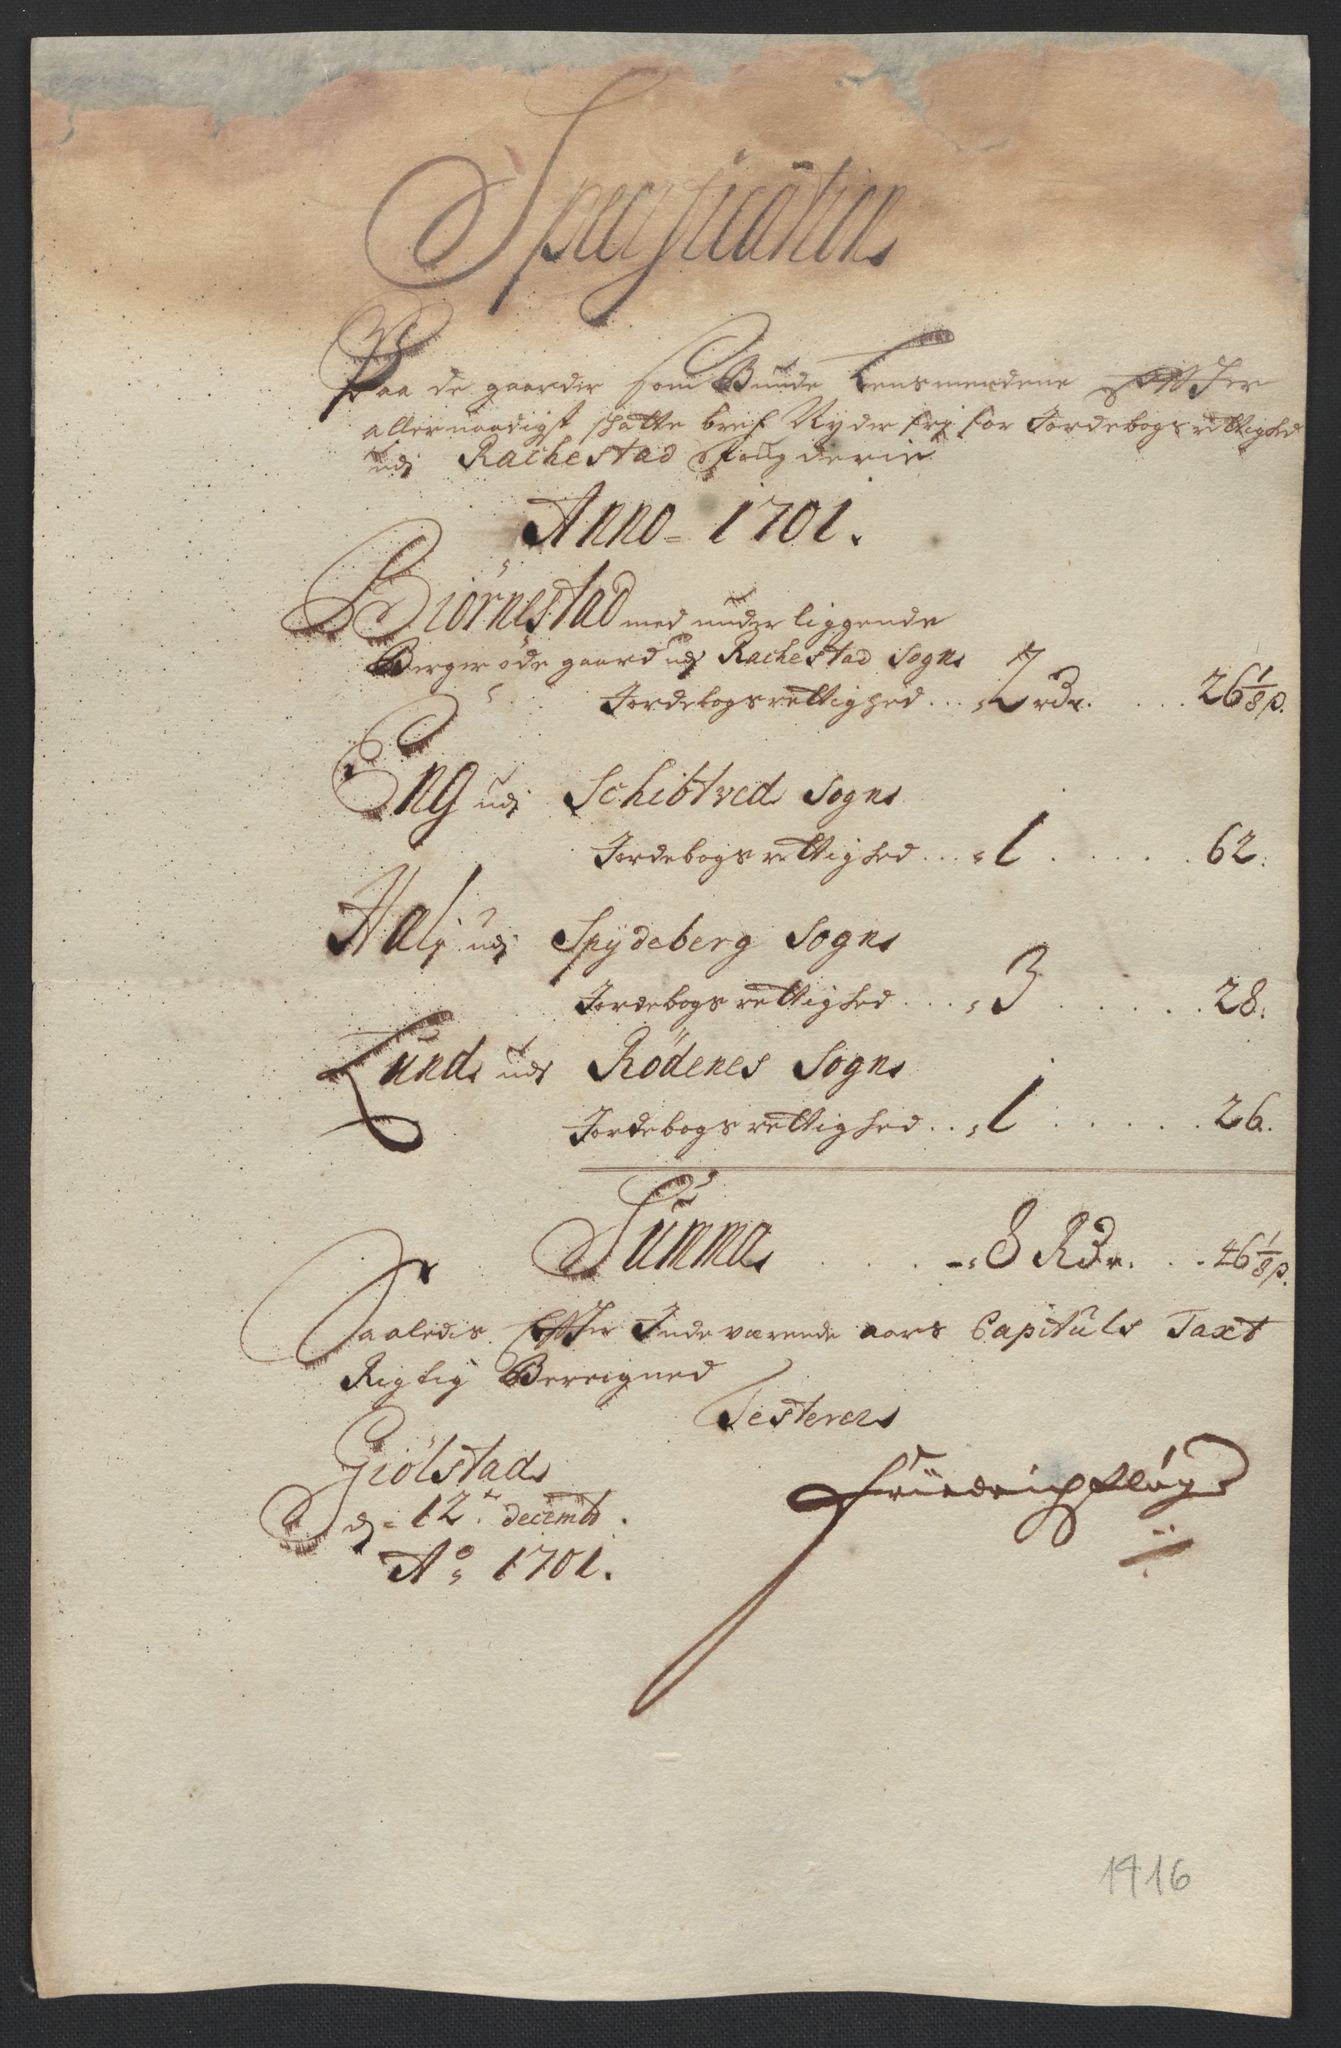 Specification
Paa de gaarder som Bunde Lensmendene Effter
allernaadigst schatte bref Nyder frj for Jordebogs rettighed
udj Rachestad fougderie
Anno = 1701.
Biörnestad med under liggende
Berger öde gaard udj Rachestad Sogn
Jordebogs rettighed . . . 2 rdr. . . . 26 1/8 s.
Eng udj Schibtved Sogn
Jordebogs rettighed . . . 1 . . . . . . 62.
Hali udj Spydeberg Sogn
Jordebogs rettighed . . . 3 . . . . . . 28.
Lund udj Rödenes Sogn
Jordebogs rettighed . . . 1 . . . . . . 26.
Summa . . . . 8 Rdr. . . 46 1/8 s.
Saaledis Effter Indeværende aars Capituls Taxt
Rigtig Beregned
Testerer
Giölstad
dj = 12. decemb.
Ao 1701.
Friederich Pflug
1416